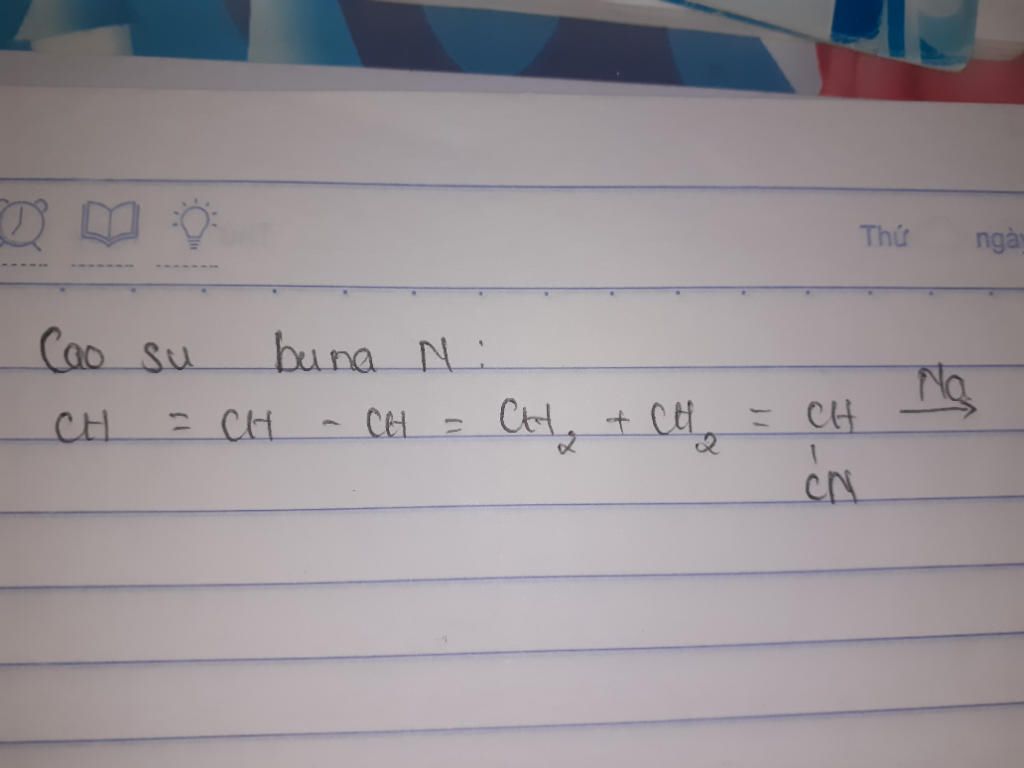 Thứ ngày
Cao su buna N:
CH = CH - CH = CH₂ + CH₂ = CH Na →
CN